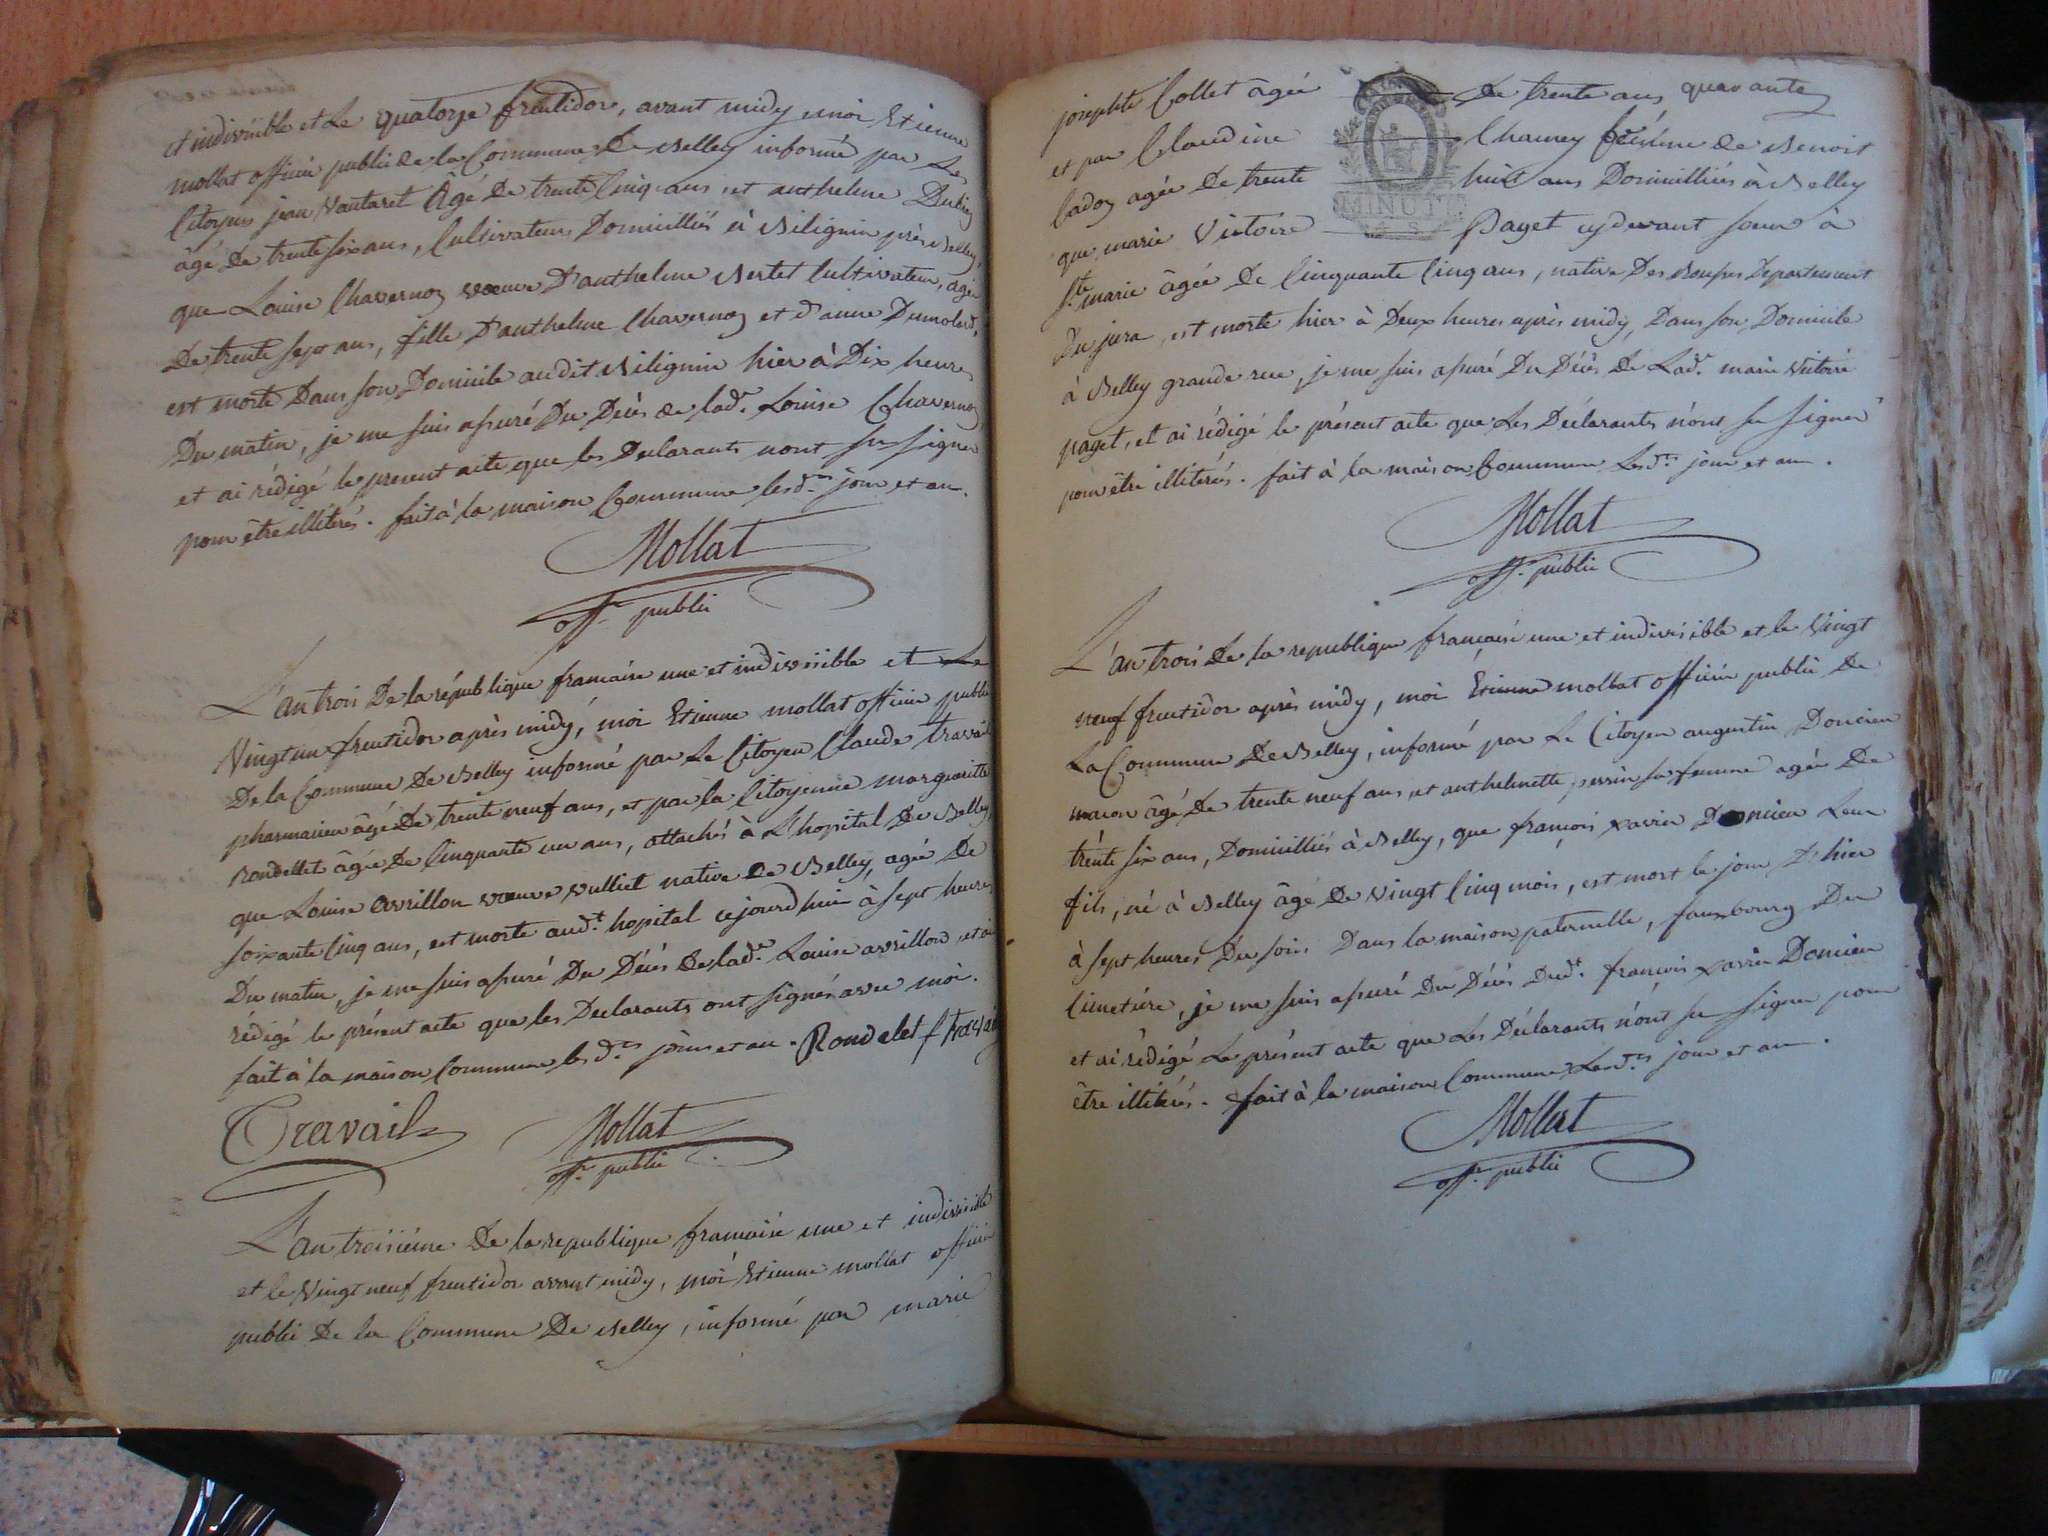 et indivisible et Le quatorze fructidor, avant midy, moi Etienne
mollat officier public de la Commune De Belley informé par Les
Citoyens jean Vautaret Âgé De trente Cinq ans, et anthelme Dubiez
âgé De trente six ans, Cultivateurs Domicilliés à Bilignin près Belley,
que Louise Chavernoz vœuve D'anthelme Bertet Cultivateur, agée
De trente Sept ans, fille D'anthelme Chavernoz et d'anne Dumolard,
est morte Dans son Domicile audit Bilignin hier à Dix heures
Du matin, je me suis assuré Du Décès de lad.e Louise Chavernoz,
et ai rédigé le present acte que les Declarants n'ont su signer
pour être illiterés. fait à la maison Commune lesd.ts jour et an.
Mollat
off.r public
L'an trois De la république francaise une et indivisible et Le
Vingt un fructidor après midy, moi Etienne mollat officier public
De la Commune De Belley informé par Le Citoyen Claude travail
pharmacien âgé De trente neuf ans, et par la Citoyenne margueritte
Rondellet âgée De Cinquante un ans, attachés à L'hopital De Belley,
que Louise avrillon vœuve vulliet native De Belley, agée De
soixante Cinq ans, est morte aud.t hopital cejourd'huie à sept heures
Du matin, je me suis assuré Du Décès De lad.e Louise avrillon, et ai
rédigé le présent acte que les Declarants ont signés avec moi.
fait à la maison Commune lesd.ts jour et an. Rondelet f travail
Travail
Mollat
off.r public
L'an troisiéme De la republique francaise une et indivisible
et le Vingt neuf fructidor avant midy, moi Etienne mollat officier
public De la Commune De Belley, informé par marie
josephte Collet âgée De trente ans, quarante
et par Claudine Chamey féemme de Benoit
Cadoz agée De trente huit ans Domicilliés à Belley
MINUTE
que marie Victoire Paget cydevant sœur à
S.te marie âgée De Cinquante Cinq ans, native Des Departement
Du jura, est morte hier à Deux heures après midy, Dans son Domicile
à Belley grande rue, je me suis assuré Du Décès De Lad.e marie Victoire
paget, et ai rédigé le présent acte que Les Déclarants n'ont su signer
pour être illiterés. fait à la maison Commune Lesd.ts jour et an.
Mollat
off.r public
L'an trois De la republique francaise une et indivisible et le Vingt
neuf fructidor après midy, moi Etienne mollat officier public De
La Commune De Belley, informé par Le Citoyen augustin Doncieu
macon âgé De trente neuf ans, et anthelmette perrin sa femme agée De
trente six ans, Domicilliés à Belley, que françois xavier Doncieu Leur
fils, né à Belley âgé De Vingt Cinq mois, est mort le jour D'hier
à sept heures Du soir Dans la maison paternelle, fauxbourg Du
Cimetière, je me suis assuré Du Décès Dud.t françois xavier Doncieu
et ai rédigé Le présent acte que Les Déclarants n'ont su signer pour
être illiterés. fait à la maison Commune Lesd.ts jour et an.
Mollat
off.r public